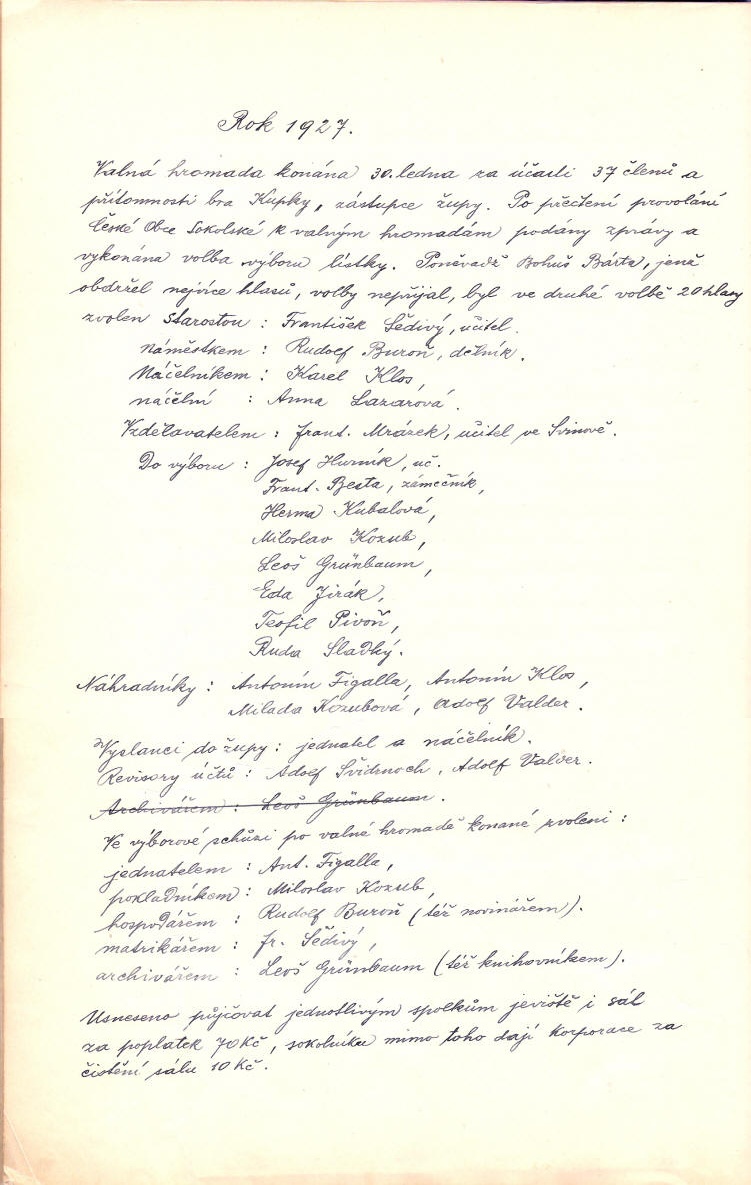 Rok 1927.
Valná hromada konána 30. ledna za účasti 37 členů a
přítomnosti bra Kupky, zástupce župy. Po přečtení provolání
České Obce Sokolské k valným hromadám podány zprávy a
vykonána volba výboru lístky. Poněvadž Bohuš Bárta, jenž
obdržel nejvíce hlasů, volby nepřijal, byl ve druhé volbě 20 hlasy
zvolen starostou : František Šedivý, učitel.
náměstkem : Rudolf Buroň, dělník.
Náčelníkem : Karel Klos,
náčelní : Anna Lazarová.
Vzdělavatelem : Frant. Mrázek, učitel ve Svinově.
Do výboru : Josef Hurník, uč.
Frant. Besta, zámečník,
Herma Kubalová,
Miloslav Kozub,
Leoš Grünbaum,
Eda Jirák,
Teofil Pivoň,
Ruda Sladký.
Náhradníky : Antonín Figalla, Antonín Klos,
Milada Kozubová, Adolf Valder.
Vyslanci do župy : jednatel a náčelník.
Revisory účtů : Adolf Švidrnoch, Adolf Valver.
Archivářem : Leoš Grünbaum.
Ve výborové schůzi po valné hromadě konané zvoleni :
jednatelem : Ant. Figalla,
pokladníkem : Miloslav Kozub,
hospodářem : Rudolf Buroň (též novinářem).
matrikářem : Fr. Šedivý,
archivářem : Leoš Grünbaum (též knihovníkem).
Usneseno půjčovat jednotlivým spolkům jeviště i sál
za poplatek 70 Kč, sokolníku mimo toho dají korporace za
čistění sálu 10 Kč.